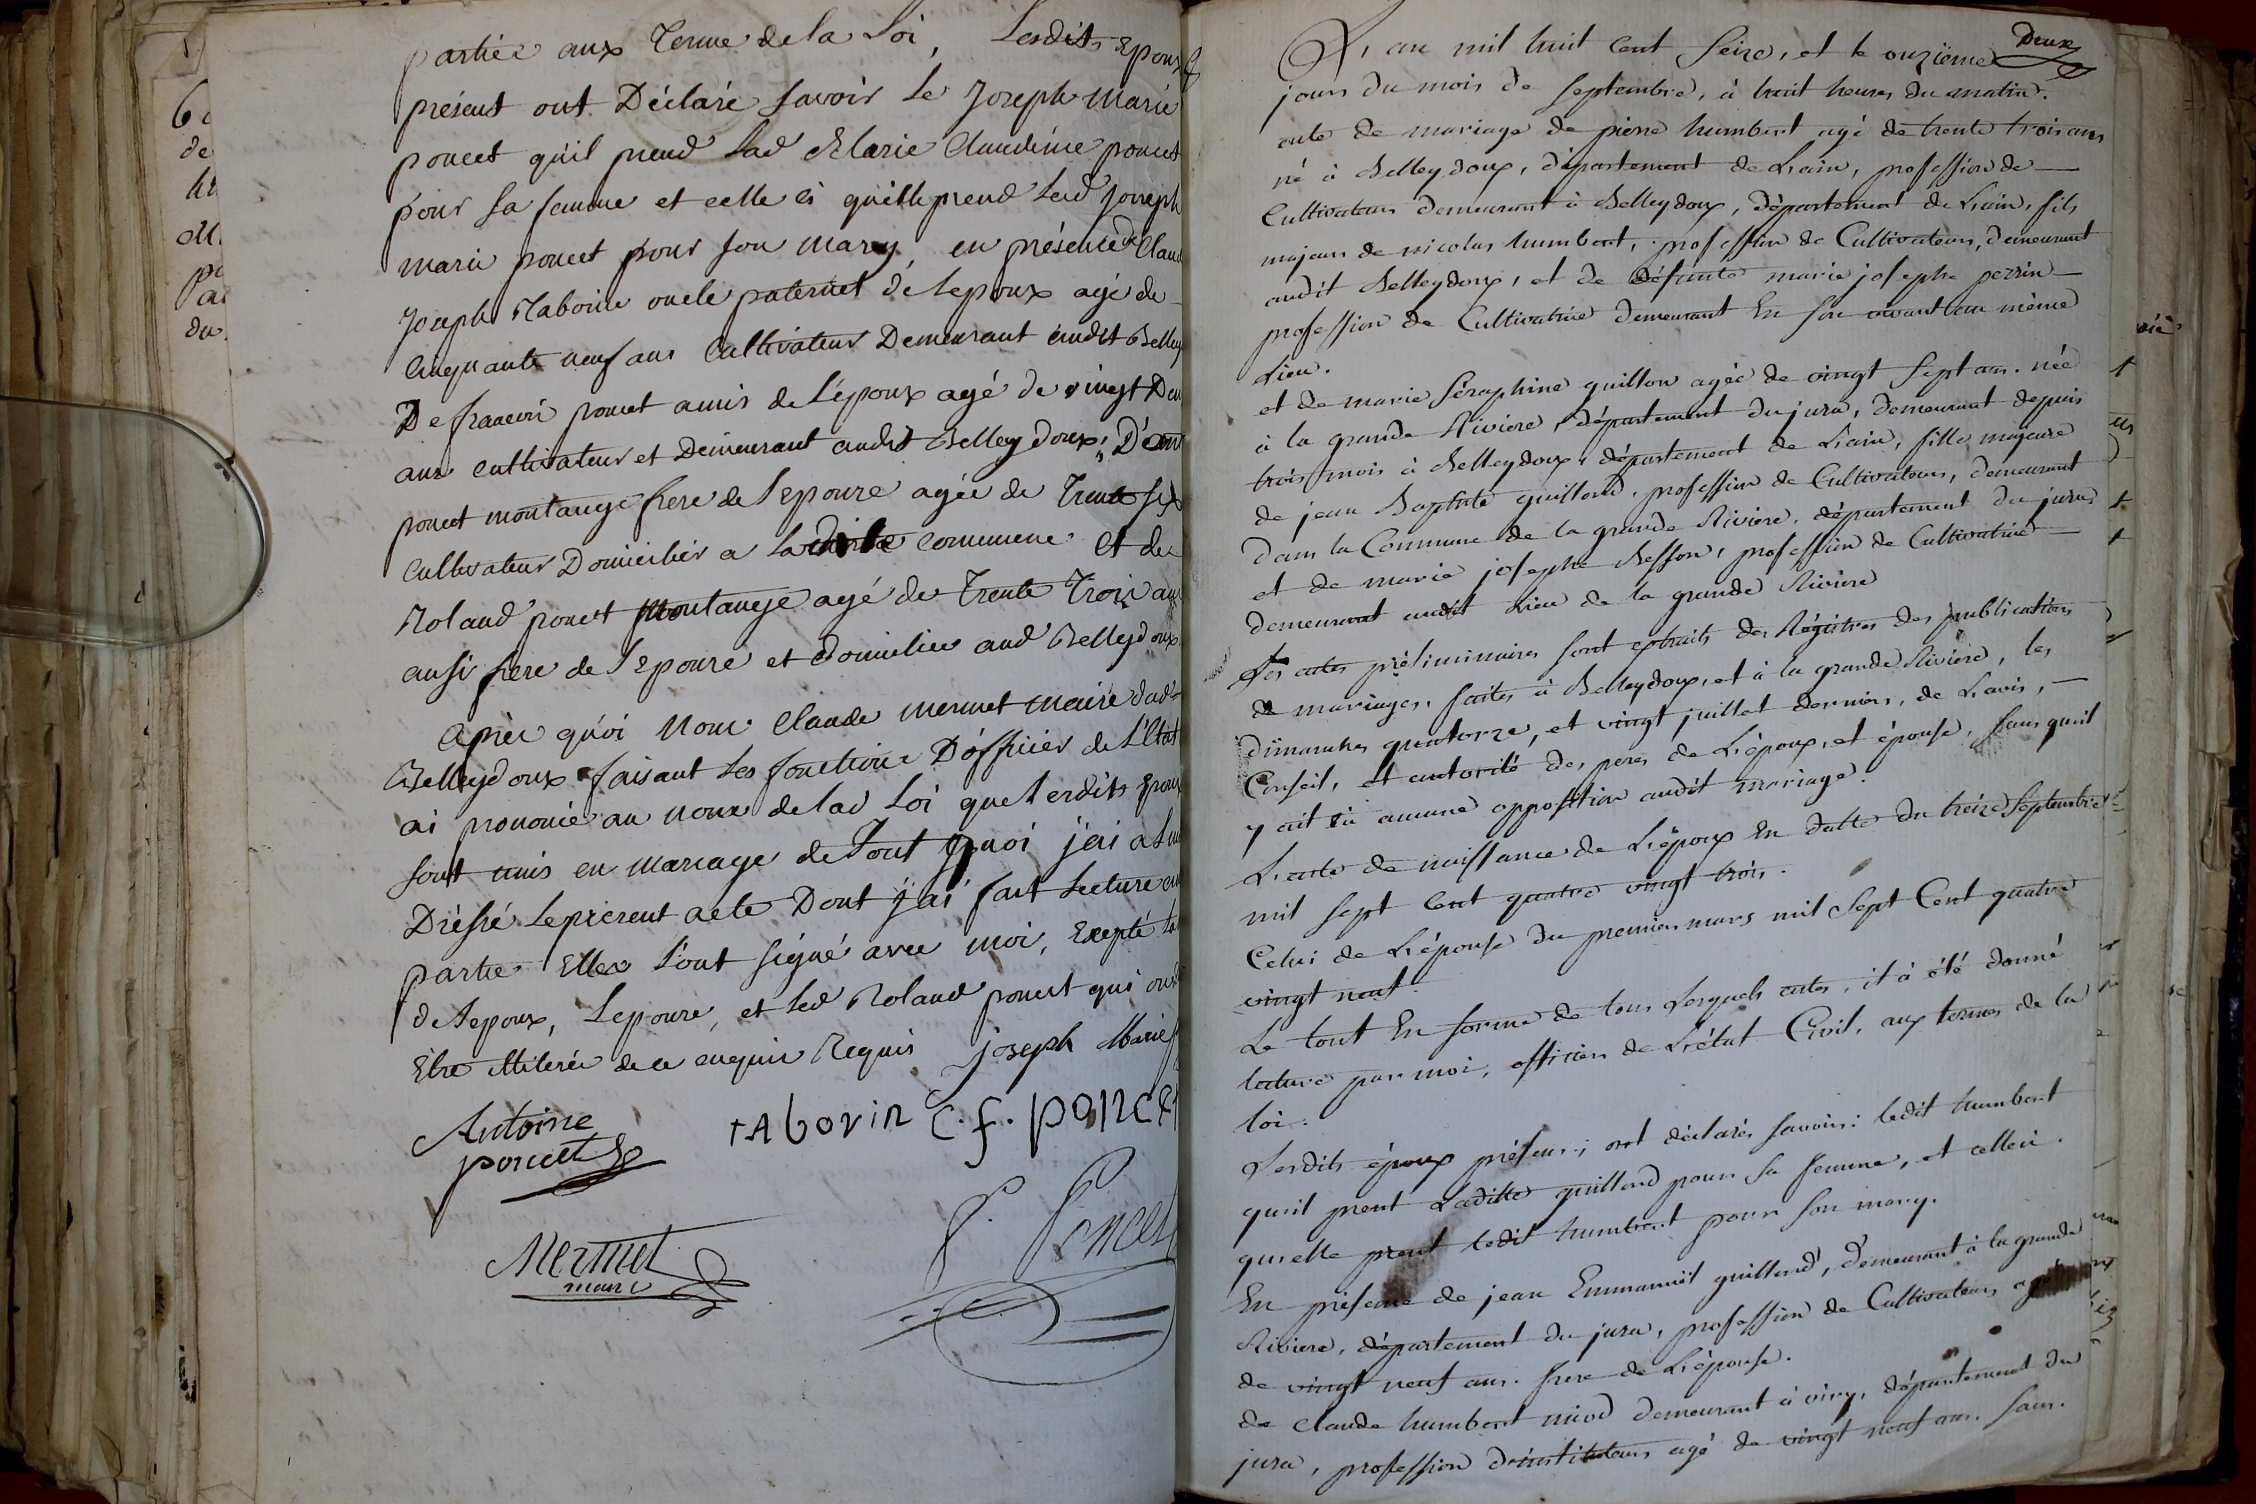 partiee aux Terme de la Loi, Lesdits Epoux
présent ont Déclaré savoir Le Joseph Marie
poncet qu'il prend Lad Marie Claudine poncet
pour sa femme et celle ci qu'elle prend Led Joseph
marie poncet pour son mary, en présence de Claude
Joseph Tabourin oncle paternel de Lepoux agé de
Cinquante neuf ans Cultivateur Demeurant audit Belley
De francois poncet amis de L'époux agé de vingt Deux
ans cultivateur et Demeurant audit Belleydoux, D'antoine
poncet montange frere de Lepouse agée de Trente six
Cultivateur Domicilier a Ladite commune et de
Roland poncet Montange agé de Trente Trois ans
ausi frere de Lepouse et domicilier aud Belleydoux
Après quoi Nous Claude mermet maire dud
Belleydoux faisant Les fonctions D'officier de L'Etat
ai prononcé au nom de lad Loi que Lesdits Epoux
sont unis en mariage de Tout quoi jai
Dréssé Le présent acte Dont j'ai fait Lecture aux
partie Elles L'ont signé avec moi, Excepté
de Lepoux, Lepouse, et Led Roland poncet qui
Etre illiterée de ce enquis Requis joseph Marie
Antoine
poncet
tabovin C. f. poncet
P. Poncet
Mermet
maire
Deux
L'an mil huit cent seize, et le onzième
jours du mois de septembre, à huit heures du matin.
acte de mariage de pierre humbert agé de trente trois ans
né à Belleydoux, département de L'ain, profession de
Cultivateur demeurant à Belleydoux, département de L'ain, fils
majeur de nicolas humbert, profession de Cultivateur, demeurant
audit Belleydoux, et de défunte marie josephe perrin
profession de Cultivatrice demeurant En son vivant au même
Lieu.
et de marie séraphine guillon agée de vingt sept ans. née
à la grande Riviere, département du jura, demeurant depuis
trois mois à Belleydoux, département de L'ain, fille majeure
de jean Baptiste guillond, profession de Cultivateur, demeurant
dans la Commune de la grande Riviere, département du jura
et de marie josephe Besson, profession de Cultivatrice
demeurant audit Lieu de la grande Riviere
Les actes préliminaires sont extraits des Régistres des publications
de mariages, faites à Belleydoux, et à la grande Riviere, les
dimanches quatorze, et vingt juillet derniers, de L'avis,
Conseil, et autorité des peres de L'époux, et épouse, sans qu'il
y ait eu aucune opposition audit mariage.
L'acte de naissance de L'époux En datte du treize septembre
mil sept cent quatre vingt trois.
Celui de L'épouse du premier mars mil sept Cent quatre
vingt neuf.
Le tout En forme de tous Lesquels actes, il à été donné
lecture par moi, officier de L'état Civil, aux termes de la
loi.
Lesdits époux présens; ont déclarés savoir: ledit humbert
qu'il prent Laditte guillond pour sa femme, et celleci
qu'elle prent ledit humbert pour son mary.
En présence de jean Emmanuël guillond, demeurant à la grande
Riviere, département du jura, profession de Cultivateur agé
de vingt neuf ans. frere de L'épouse.
de Claude humbert nicod demeurant à viry, département du
jura, profession d'instituteur agé de vingt neuf ans. sans.